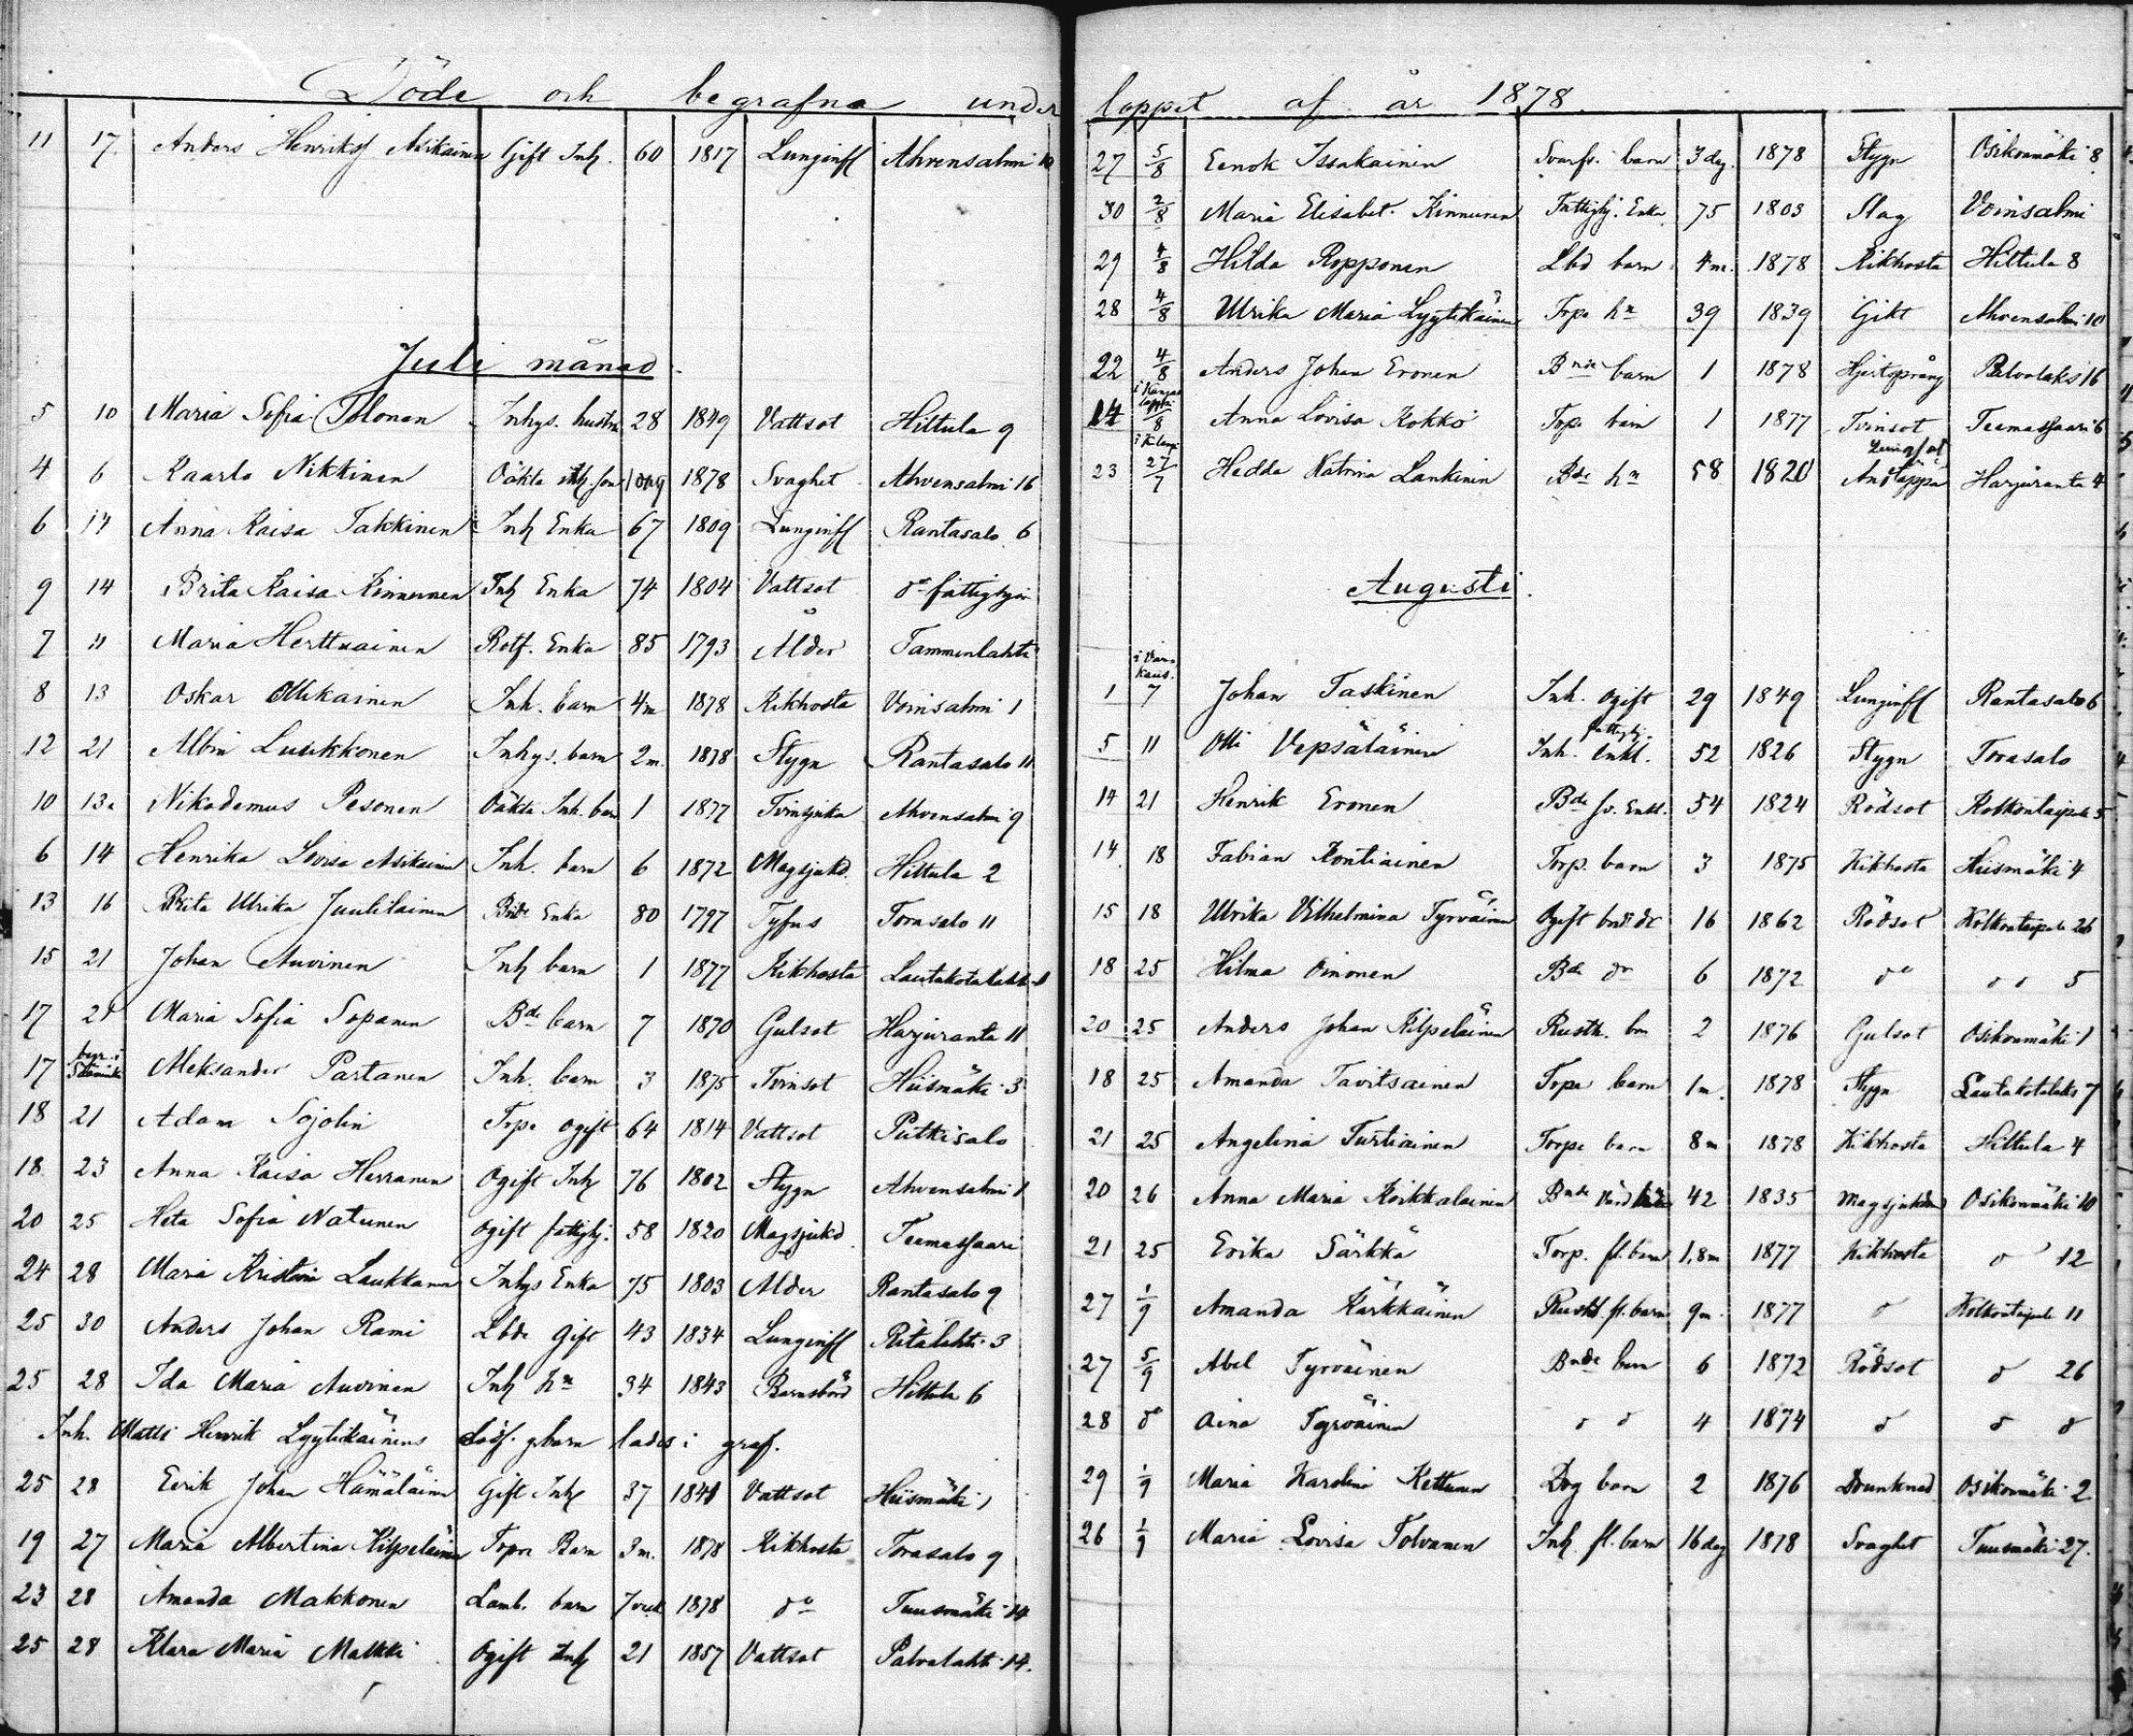 Döde och begrafna under
11 17. Anders Henriksf Asikainen Gift Inh. 60 1817 Lunginfl Ahvensalmi 10
Juli månad.
5 10 Maria Sofia Tolonen Inhys. hustru 28 1849 Vattsot Hiltula 9
4 6 Kaarlo Nikkinen Oäkta inh. son 1878 Svaghet Ahvensalmi 16
6 14 Anna Kaisa Takkinen Inh Enka 67 1809 Lunginfl Rantasalo 6
9 14 Brita Kaisa Kinnunen Inh Enka 74 1804 Vattsot do fattighj
7 11 Maria Herttuainen Rotf. Enka 85 1793 Ålder Tammenlahti
8 13 Oskar Ollikainen Inh. barn 4m 1878 Kikhosta Voinsalmi 1
12 21 Albin Luukkonen Inhys. barn 2m. 1878 Stygn Rantasalo 11
10 13 Nikademus Pesonen Oäkta Inh. barn 1 1877 Tvinsjuka Ahvensalmi 9
6 14 Henrika Lovisa Asikainen Inh. barn 6 1872 Magsjukd. Hiltula 2
13 16 Brita Ulrika Juutilainen Bnde Enka 80 1797 Tyfus Torasalo 11
15 21 Johan Auvinen Inh barn 1 1877 Kikhosta Lautakotalahti 1
17 21 Maria Sofia Sopanen Bde barn 7 1870 Gulsot Harjuranta 11
17 begr. i Sääminki Aleksander Partanen Inh. barn 3 1875 Tvinsot Hiismäki 3
18 21 Adam Sojolin Torp. ogift 64 1814 Vattsot Putkisalo
18 23 Anna Kaisa Herranen Ogift Inh 76 1802 Stygn Ahvensalmi 1
20 25 Heta Sofia Natunen Ogift fattighj. 58 1820 Magsjukd. Teemassaari
24 28 Maria Kristina Laukkanen Inhys Enka 75 1803 Ålder Rantasalo 9
25 30 Anders Johan Rami Lbde Gift 43 1834 Lunginfl Ritalahti 3
25 28 Ida Maria Auvinen Inh hu 34 1843 Barnsbörd Hiltula 6
Inh. Matti Henrik Lyytikäinens dödf. gbarn lades i graf.
25 28 Erik Johan Hämäläinen Gift Inh 37 1841 Vattsot Hiismäki 1
19 27 Maria Albertina Kilpeläinen Torp Barn 3m. 1878 Kikhosta Torasalo 9
23 28 Amanda Makkonen Lamb. barn 7 veck 1878 do Tuusmäki 14
25 28 Klara Maria Malkki Ogift Inh 21 1857 Vattsot Palvalahti 14.
loppet af år 1878.
27 5/8 Eenok Issakainen barn 3 dag. 1878 Stygn Osikonmäki 8
30 2/8 Maria Elisabet Kinnunen Fattighj. Enka 75 1803 Slag Voinsalmi
29 4/8 Hilda Ropponen Lbd barn 4m. 1878 Kikhosta Hiltula 8
28 4/8 Ulrika Maria Lyytikäinen Torp. hu 39 1839 Gikt Ahvensalmi 10
22 4/8 Anders Johan Eronen Bnde barn 1 1878 Hjertsprång Palvalaks 16
14 i Kangaslampi /8 Anna Lovisa Kokko Torp barn 1 1877 Tvinsot Teemassaari 6
23 i K.lampi 27/7 Hedda Katrina Lankinen Bde hu 58 1820 Harjuranta 4
Augusti.
1 i Varkaus. 7 Johan Taskinen Inh. ogift 29 1849 Lunginfl Rantasalo 6
5 11 Otti Vepsäläinen Inh. fattighj. Enkl. 52 1826 Stygn Torasalo
14 21 Henrik Eronen Bde sv. Enkl. 54 1824 Rödsot Kolkontaipale 5
14 18 Fabian Kontiainen Torp. barn 3 1875 Kikhosta Hiismäki 4
15 18 Ulrika Vilhelmina Tyrväinen Ogift bnde dr 16 1862 Rödsot Kolkontaipale 26
18 25 Hilma Oinonen Bde dr 6 1872 do d o 5
20 25 Anders Johan Kilpeläinen Rusth. bn 2 1876 Gulsot Osikonmäki 1
18 25 Amanda Tavitsainen Torp barn 1m. 1878 Stygn Lautakotalaks 7
21 25 Angelina Turtiainen Torp barn 8m 1878 Kikhosta Hiltula 4
20 26 Anna Maria Koikkalainen Bnde 42 1835 Magsjukdom Osikonmäki 10
21 25 Erika Särkkä Torp. fl. barn 1,8m 1877 Kikhosta d 12
27 1/9 Amanda Kärkkäinen Rusth. fl. barn 9m. 1877 d Kolkontaipale 11
27 5/9 Abel Tyrväinen Bnde barn 6 1872 Rödsot d 26
28 do Aina Tyrväinen d d 4 1874 d d d
29 1/9 Maria Karolina Kettunen barn 2 1876 Drunknad Osikonmäki 2
26 1/9 Maria Lovisa Tolvanen Inh. fl. barn 16 dag 1878 Svaghet Tuusmäki 27.